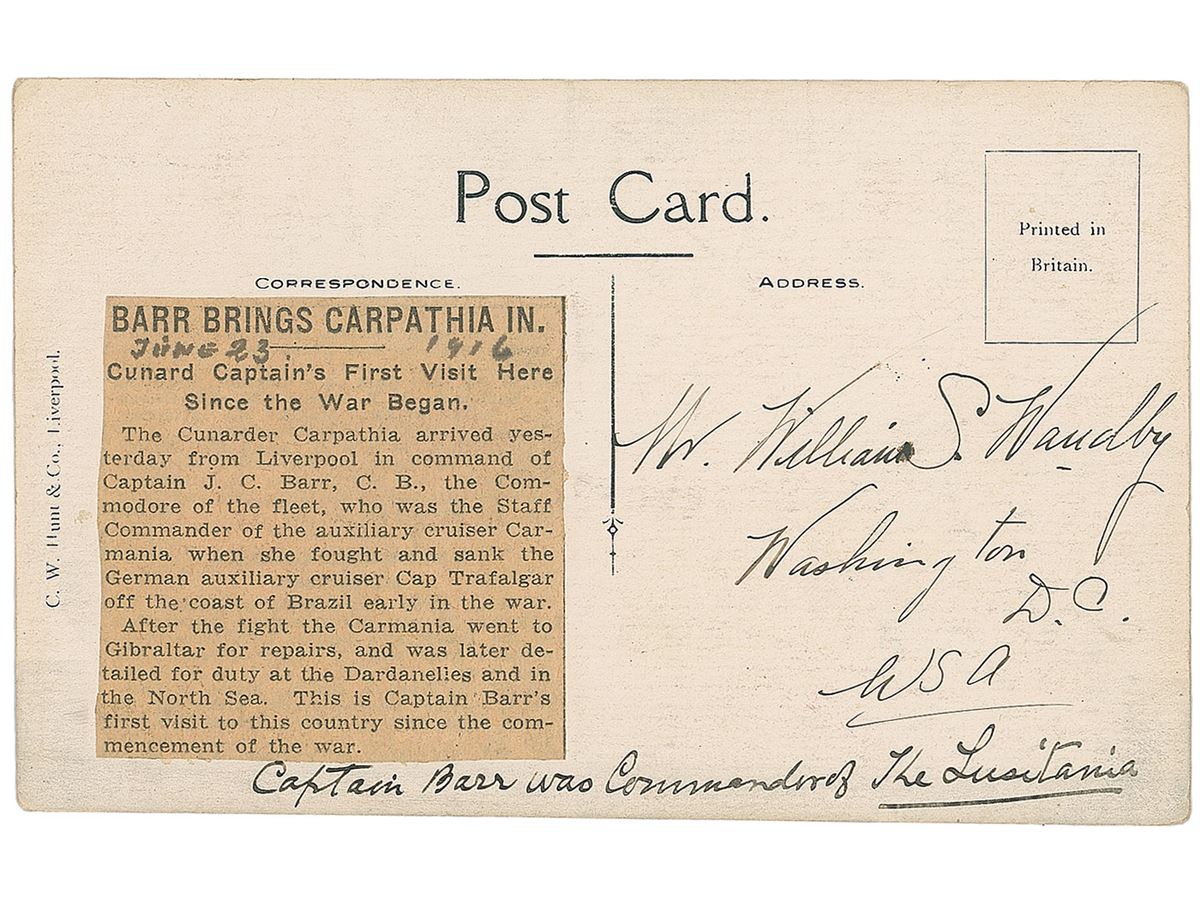 Post Card.
Printed in
Britain.
CORRESPONDENCE.
ADDRESS.
C. W. Hunt & Co., Liverpool.
BARR BRINGS CARPATHIA IN.
JUNE 23 1916
Cunard Captain's First Visit Here
Since the War Began.
The Cunarder Carpathia arrived yes-
terday from Liverpool in command of
Captain J. C. Barr, C. B., the Com-
modore of the fleet, who was the Staff
Commander of the auxiliary cruiser Car-
mania when she fought and sank the
German auxiliary cruiser Cap Trafalgar
off the coast of Brazil early in the war.
After the fight the Carmania went to
Gibraltar for repairs, and was later de-
tailed for duty at the Dardanelles and in
the North Sea. This is Captain Barr's
first visit to this country since the com-
mencement of the war.
Mr. William S. Waudby
Washington
D.C.
USA
Captain Barr was Commander of The Lusitania